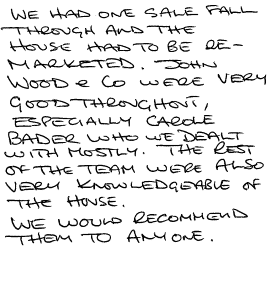 WE HAD ONE SALE FALL
THROUGH AND THE
HOUSE HAD TO BE RE-
MARKETED. JOHN
WOOD & CO WERE VERY
GOOD THROUGHOUT,
ESPECIALLY CAROLE
BADER WHO WE DEALT
WITH MOSTLY. THE REST
OF THE TEAM WERE ALSO
VERY KNOWLEDGEABLE OF
THE HOUSE.
WE WOULD RECOMMEND
THEM TO ANYONE.